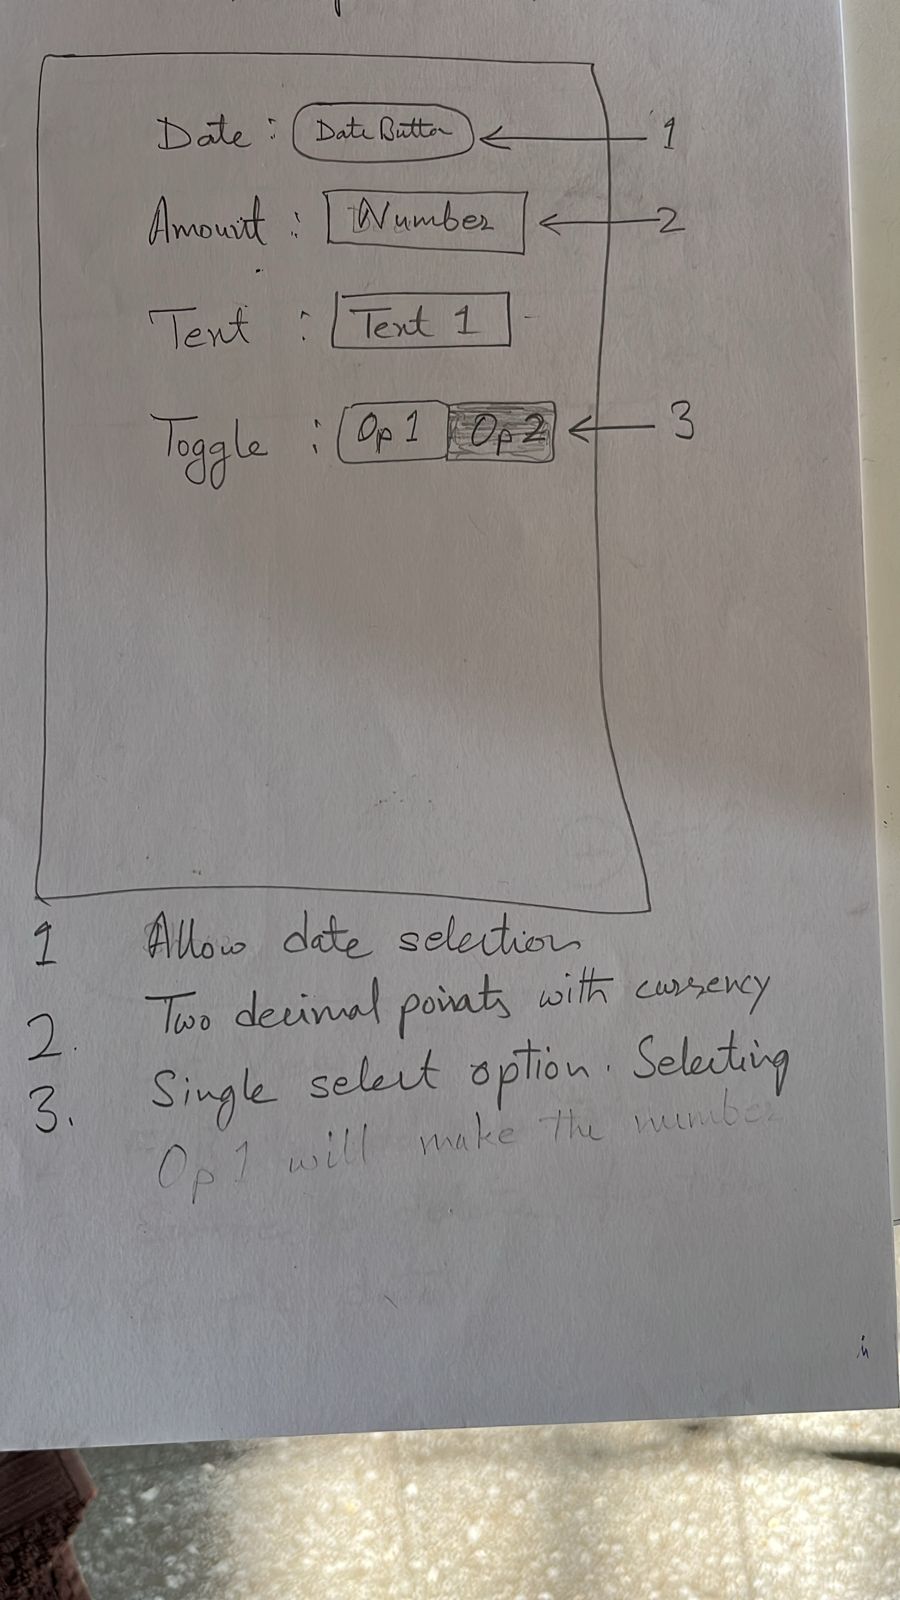 Date : Date Button ← 1
Amount : Number ← 2
Text : Text 1
Toggle : Op 1 Op 2 ← 3
1 Allow date selection
2. Two decimal points with currency
3. Single select option. Selecting
Op 1 will make the number